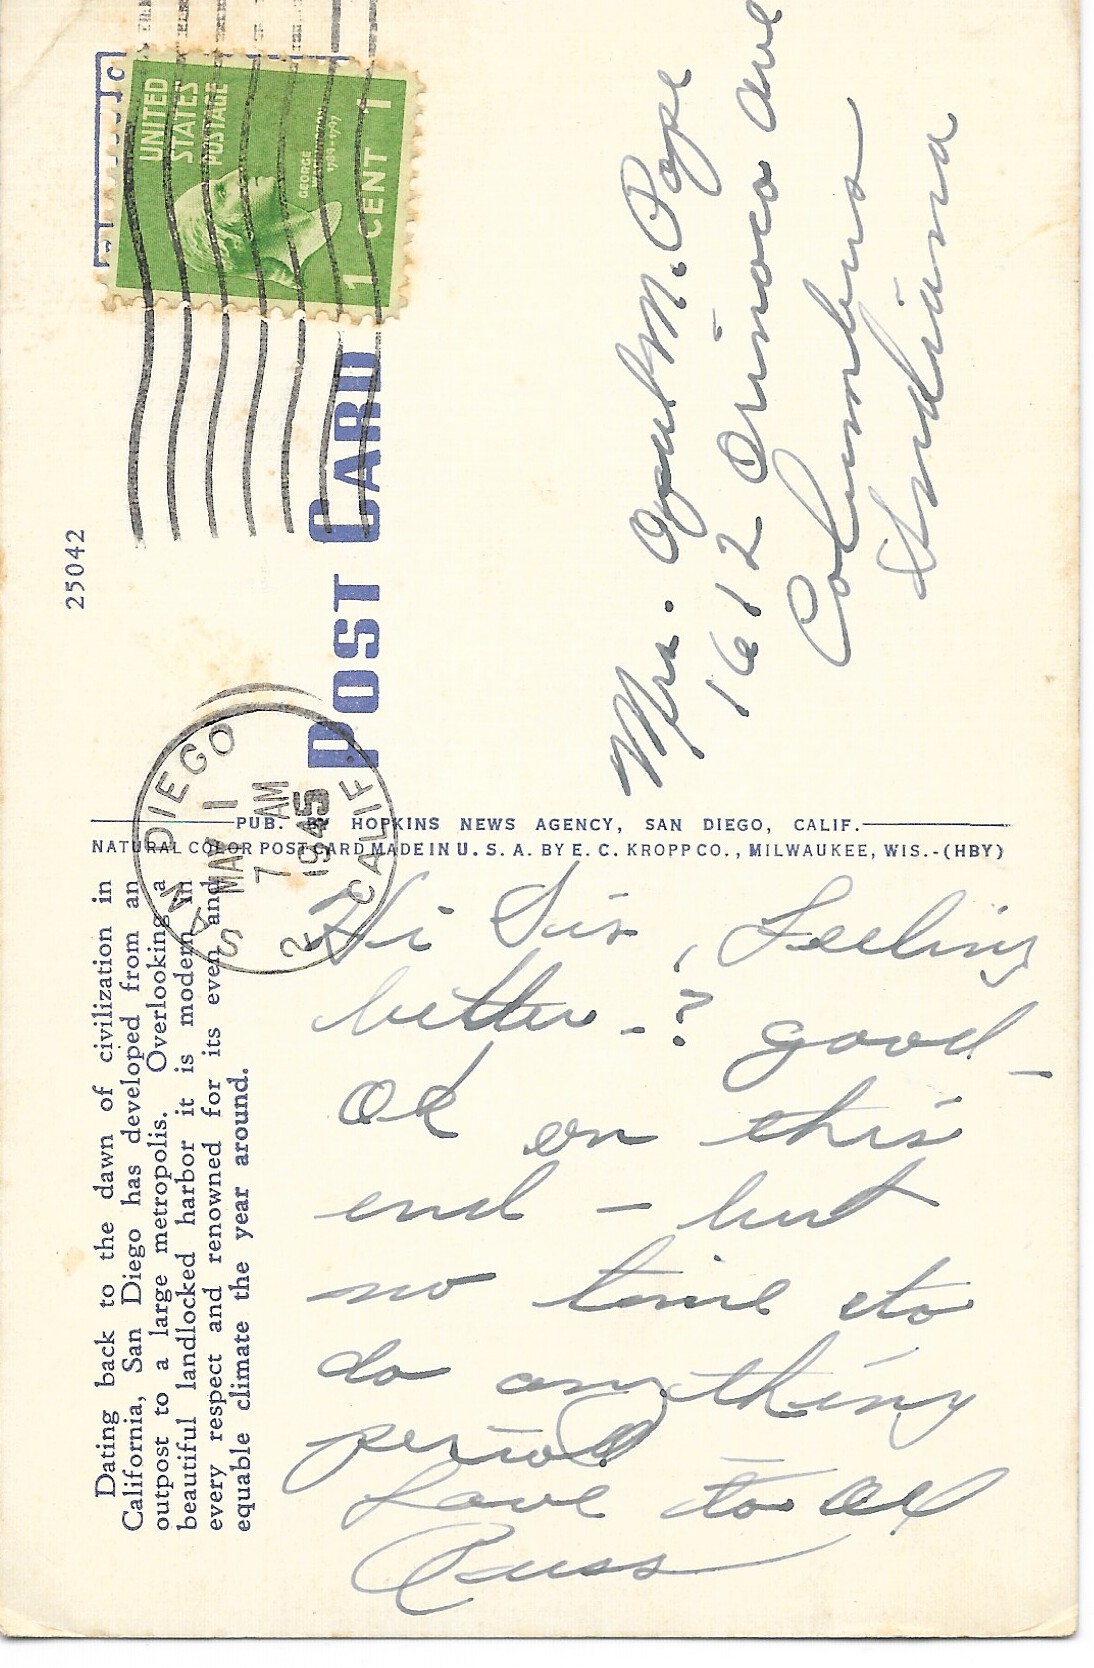 25042
UNITED
STATES
POSTAGE
GEORGE
WASHINGTON
1789-1797
1 CENT 1
POST CARD
SAN DIEGO
MAY 1
7 AM
1945
2 CALIF.
Mrs. Opal M. Pope
1612 Orinoco Ave
Columbus
Indiana
PUB. BY HOPKINS NEWS AGENCY, SAN DIEGO, CALIF.
NATURAL COLOR POST CARD MADE IN U. S. A. BY E. C. KROPP CO., MILWAUKEE, WIS.-(HBY)
Dating back to the dawn of civilization in
California, San Diego has developed from an
outpost to a large metropolis. Overlooking a
beautiful landlocked harbor it is modern in
every respect and renowned for its even and
equable climate the year around.
Hi Sis, Feeling
better-? good-
OK on this
end - but
no time to
do anything
period
Love to all
Russ